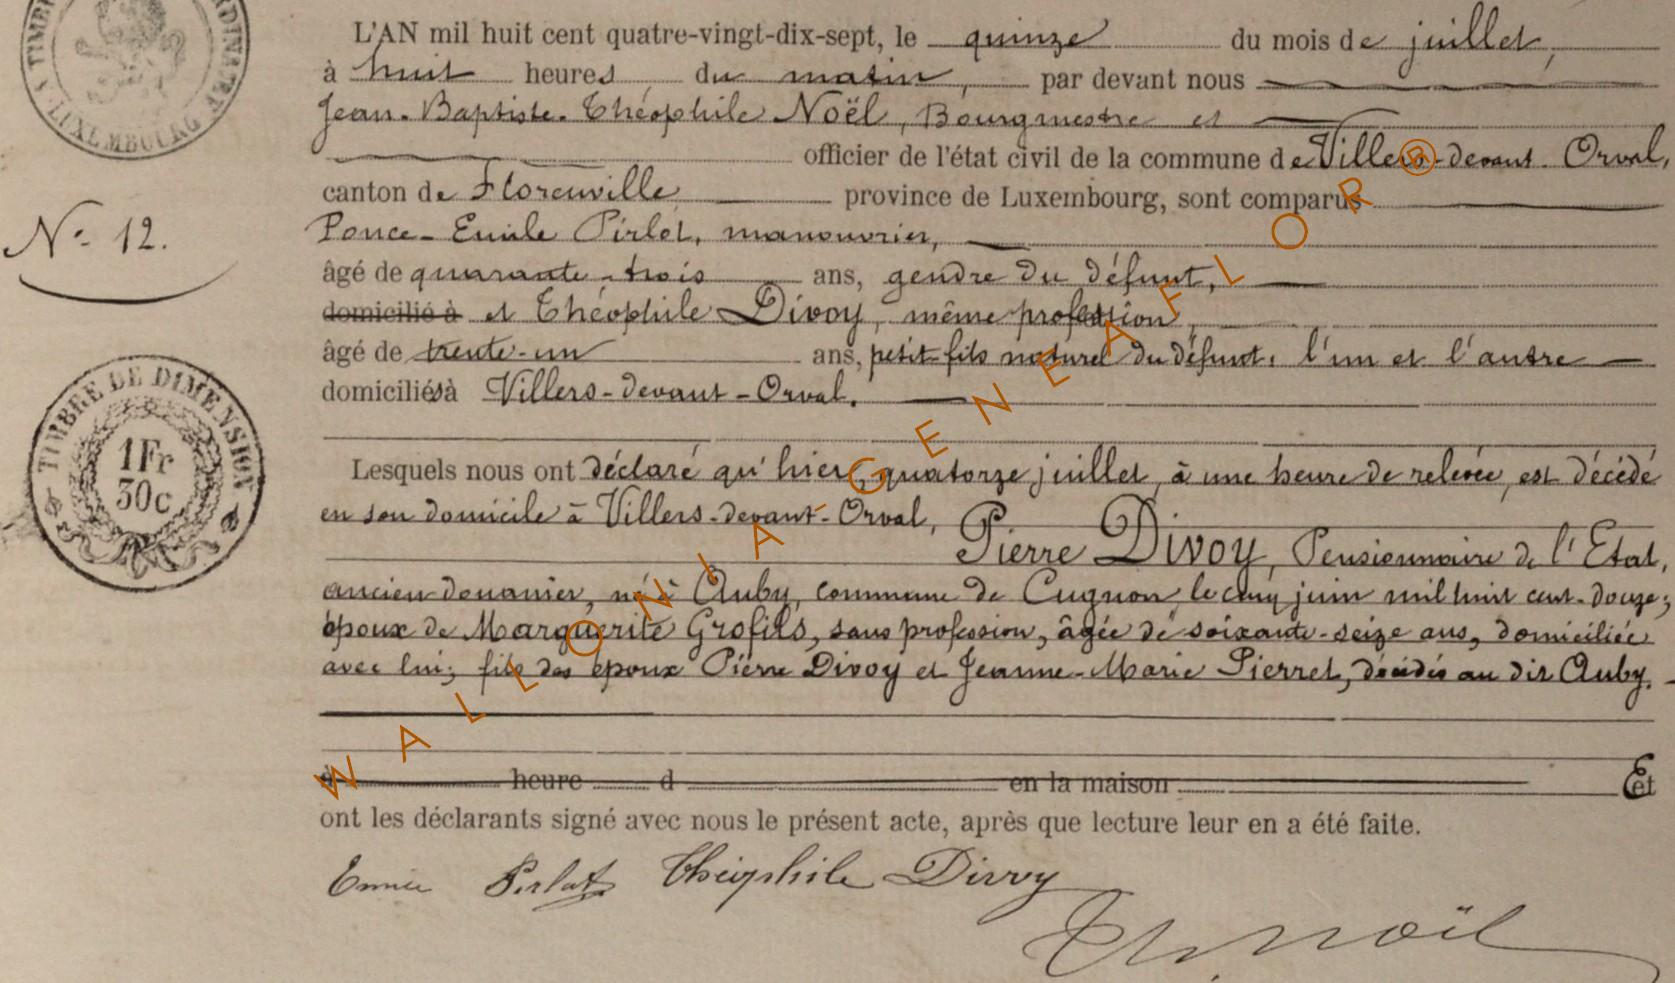 TIMBRE
ORDINAIRE
LUXEMBOURG
L'AN mil huit cent quatre-vingt-dix-sept, le quinze du mois de juillet,
à huit heures du matin, par devant nous
Jean-Baptiste-Théophile Noël, Bourgmestre et
officier de l'état civil de la commune de Villers-devant-Orval,
canton de Florenville province de Luxembourg, sont comparus
Nº 12.
Ponce-Emile Pirlot, manouvrier,
âgé de quarante-trois ans, gendre du défunt,
domicilié à et Théophile Divoy, même profession,
âgé de trente-un ans, petit-fils naturel du défunt, l'un et l'autre
domiciliés à Villers-devant-Orval.
TIMBRE DE DIMENSION
1Fr
30c
Lesquels nous ont déclaré qu'hier, quatorze juillet, à une heure de relevée, est décédé
en son domicile à Villers-devant-Orval,
Pierre Divoy, Pensionnaire de l'Etat,
ancien douanier, né à Auby, commune de Cugnon, le cinq juin mil huit cent-douze;
époux de Marguerite Grofils, sans profession, âgée de soixante-seize ans, domiciliée
avec lui; fils des époux Pierre Divoy et Jeanne-Marie Pierret, décédés au dit Auby.
à heure d en la maison Et
ont les déclarants signé avec nous le présent acte, après que lecture leur en a été faite.
Emile Pirlot Théophile Divoy
Th. Noël
WALLONIA-GENEAFLOR®